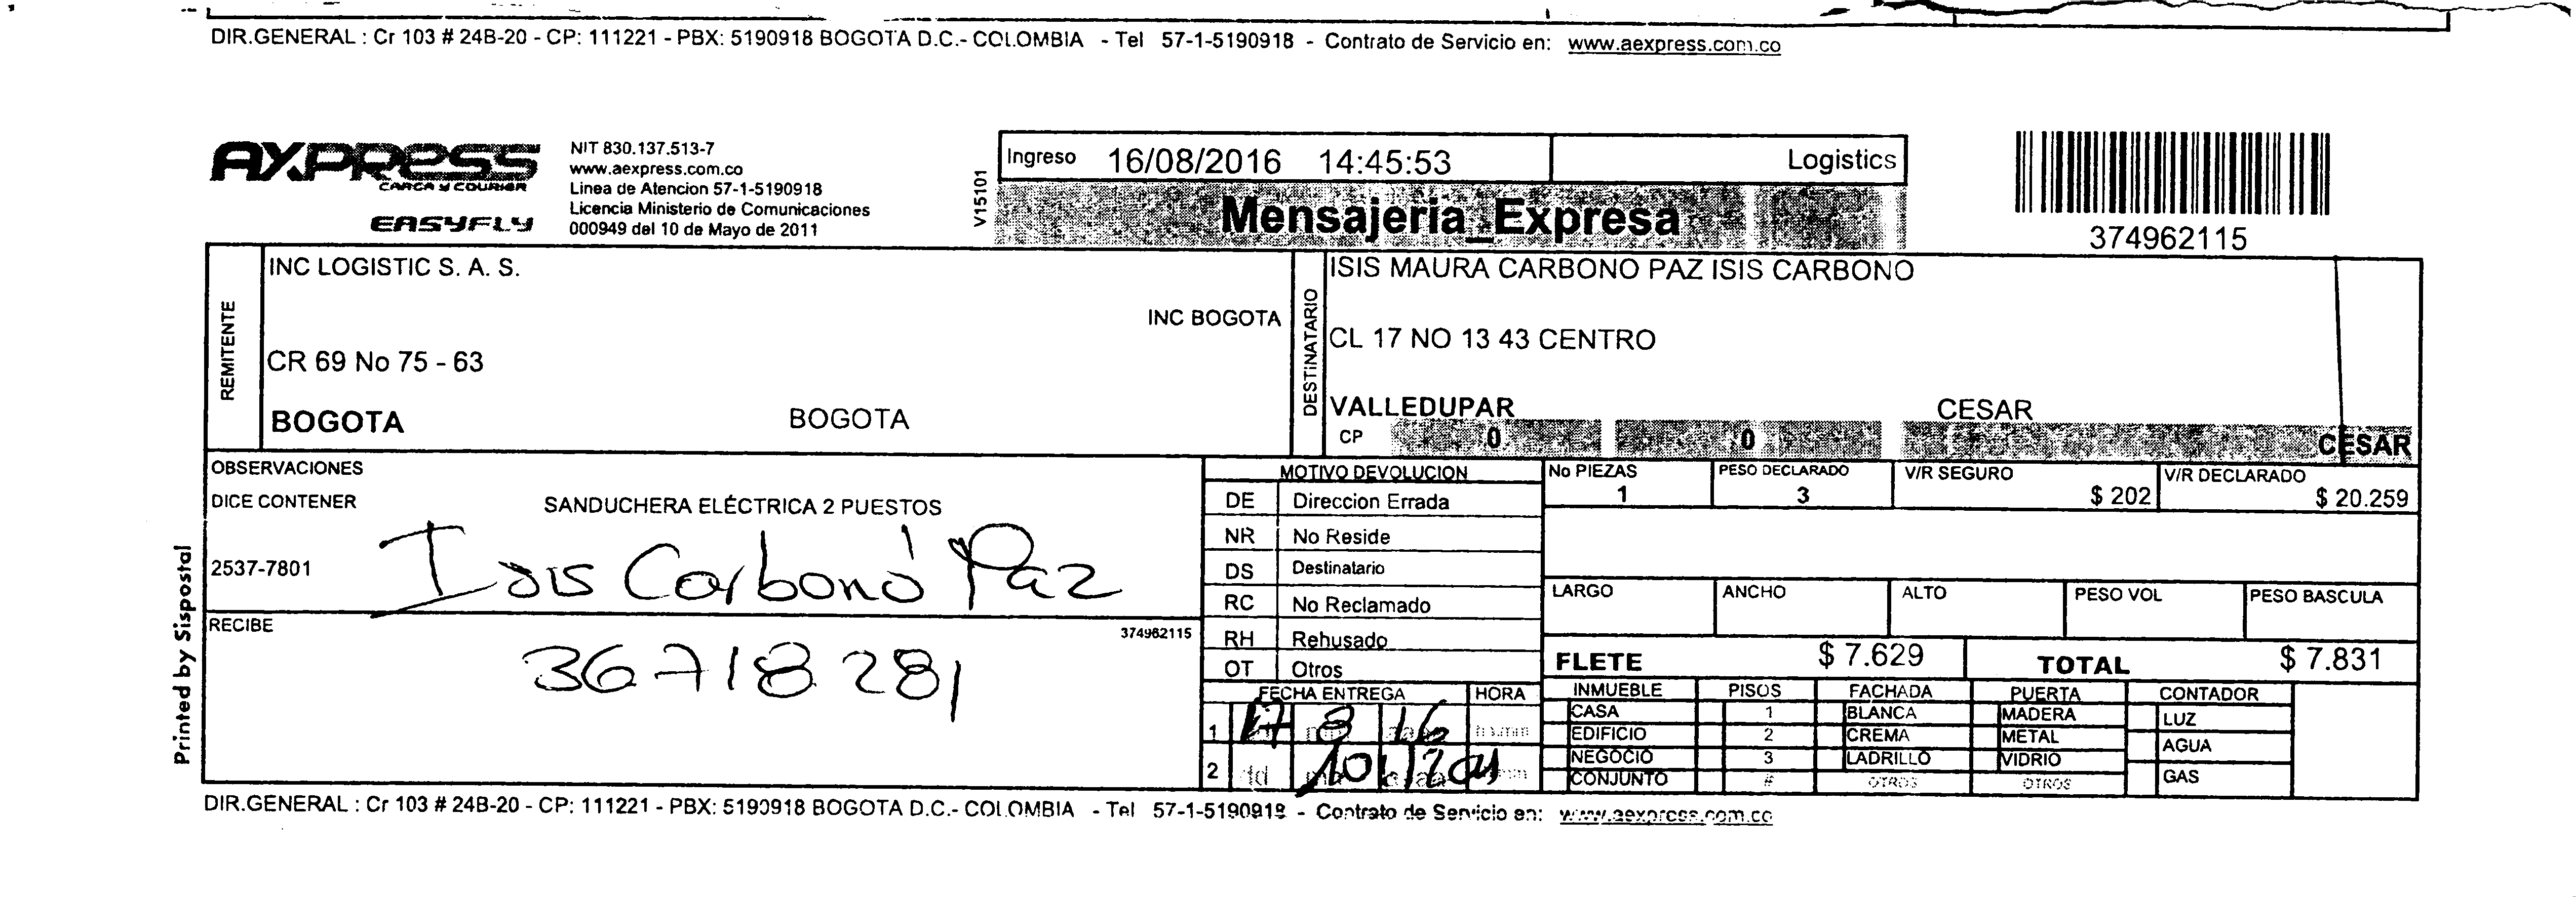 DIR.GENERAL : Cr 103 # 24B-20 - CP: 111221 - PBX: 5190918 BOGOTA D.C.- COLOMBIA - Tel 57-1-5190918 - Contrato de Servicio en: www.aexpress.com.co
AXPRESS
CARGA Y COURIER
EASYFLY
NIT 830.137.513-7
www.aexpress.com.co
Linea de Atencion 57-1-5190918
Licencia Ministerio de Comunicaciones
000949 del 10 de Mayo de 2011
V15101
Ingreso 16/08/2016 14:45:53 Logistics
Mensajeria_Expresa
374962115
REMITENTE
INC LOGISTIC S. A. S.
INC BOGOTA
CR 69 No 75 - 63
BOGOTA BOGOTA
DESTINATARIO
ISIS MAURA CARBONO PAZ ISIS CARBONO
CL 17 NO 13 43 CENTRO
VALLEDUPAR CESAR
CP 0 0 CESAR
OBSERVACIONES
DICE CONTENER SANDUCHERA ELÉCTRICA 2 PUESTOS
2537-7801
Isis Carbonó Paz
RECIBE 374962115
36718281
Printed by Sispostal
MOTIVO DEVOLUCION
DE Direccion Errada
NR No Reside
DS Destinatario
RC No Reclamado
RH Rehusado
OT Otros
FECHA ENTREGA HORA
1 17 8 16 hh:mm
2 dd
No PIEZAS PESO DECLARADO V/R SEGURO V/R DECLARADO
1 3 $ 202 $ 20.259
LARGO ANCHO ALTO PESO VOL PESO BASCULA
FLETE $ 7.629 TOTAL $ 7.831
INMUEBLE PISOS FACHADA PUERTA CONTADOR
CASA 1 BLANCA MADERA LUZ
EDIFICIO 2 CREMA METAL AGUA
NEGOCIO 3 LADRILLO VIDRIO GAS
CONJUNTO # OTROS OTROS
DIR.GENERAL : Cr 103 # 24B-20 - CP: 111221 - PBX: 5190918 BOGOTA D.C.- COLOMBIA - Tel 57-1-5190918 - Contrato de Servicio en: www.aexpress.com.co